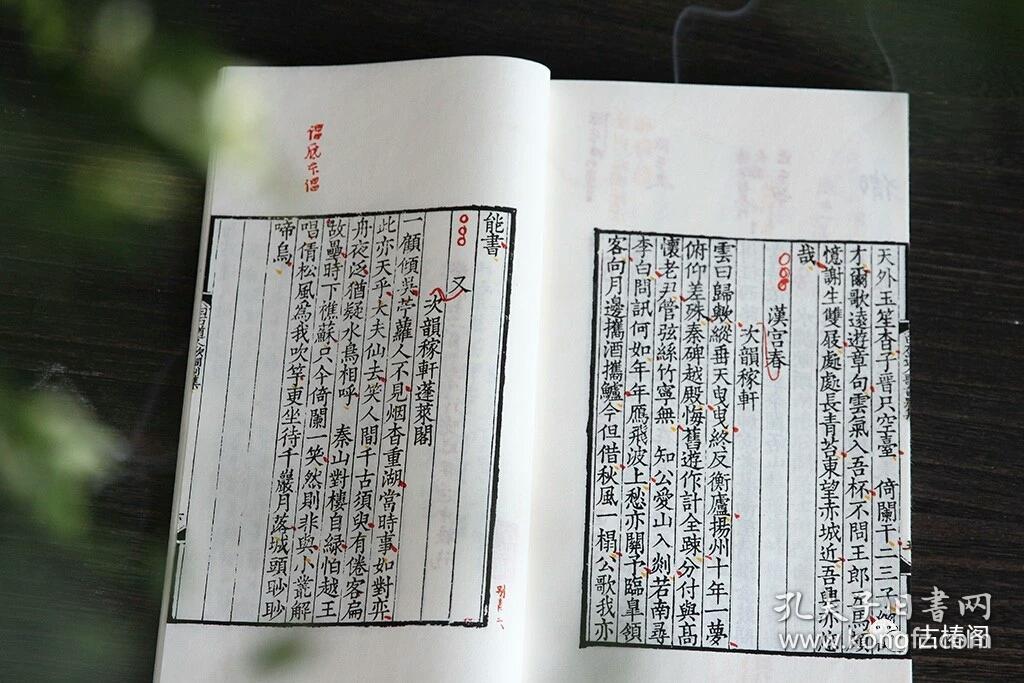 天外玉笙杳子晋只空臺 倚闌干二三子
才爾歌遠遊章句雲氣入吾杯不問王郎五馬頗
憶謝生雙屐處處長青苔東望赤城近吾興亦
哉
漢宮春
次韻稼軒
雲曰歸歟縱垂天曳曳終反衡廬揚州十年一夢
俯仰差殊秦碑越殿悔舊遊作計全疎分付與高
懷老尹管弦絲竹寧無 知公愛山入剡若南尋
李白問訊何如年年鴈飛波上愁亦關予臨臯領
客向月邊攜酒攜鱸今但借秋風一榻公歌我亦
能書
又
次韻稼軒蓬萊閣
一顧傾吳苧蘿人不見烟杳重湖當時事如對弈
此亦天乎大夫仙去笑人間千古須臾有倦客扁
舟夜泛猶疑水鳥相呼 秦山對樓自綠怕越王
故壘時下樵蘇只今倚闌一笑然則非與小叢解
唱倩松風爲我吹竽更坐待千巖月落城頭眇眇
啼烏
孔夫子旧書网
www.kongfz.com
古椿阁